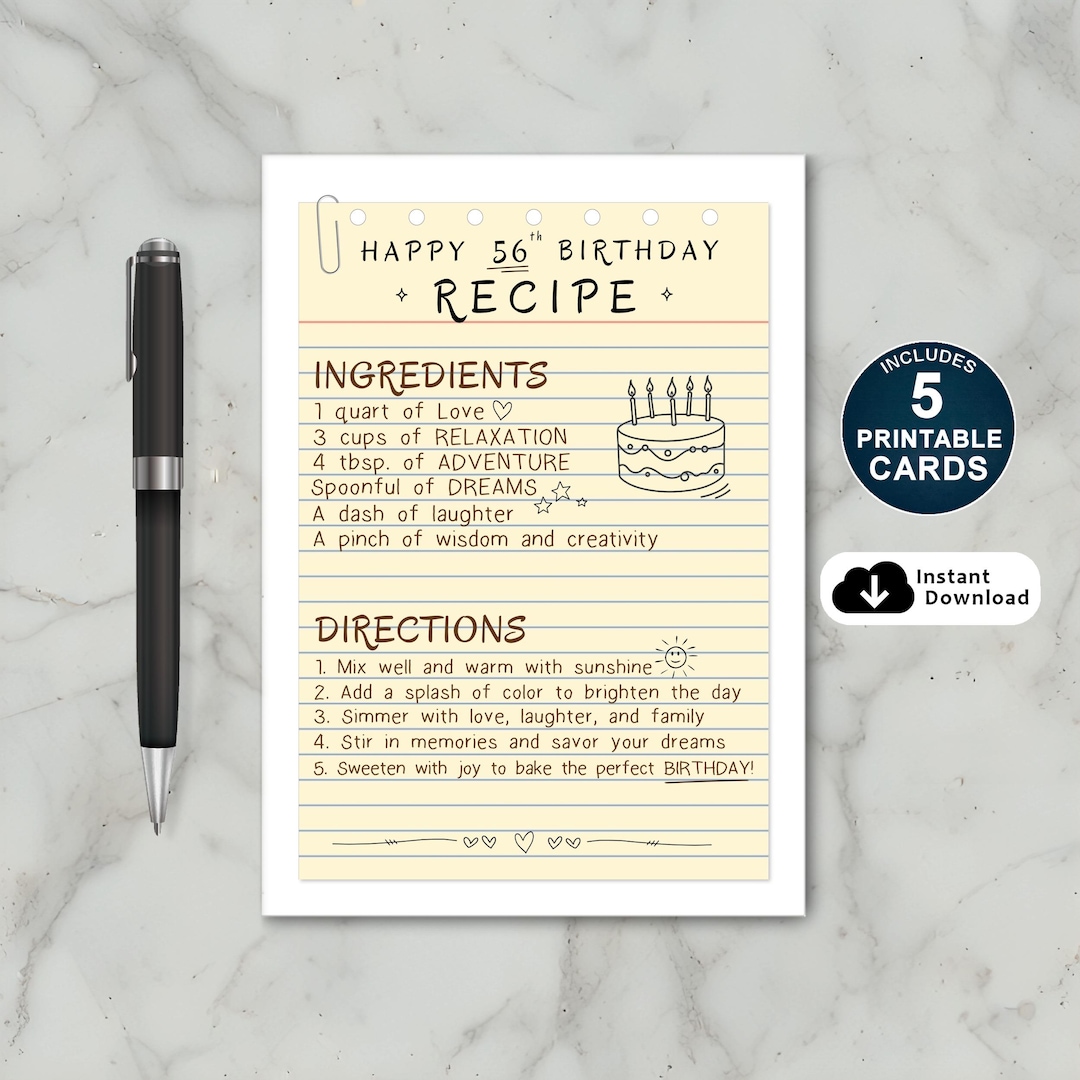 HAPPY 56th BIRTHDAY
RECIPE
INGREDIENTS
1 quart of Love
3 cups of RELAXATION
4 tbsp. of ADVENTURE
Spoonful of DREAMS
A dash of laughter
A pinch of wisdom and creativity
DIRECTIONS
1. Mix well and warm with sunshine
2. Add a splash of color to brighten the day
3. Simmer with love, laughter, and family
4. Stir in memories and savor your dreams
5. Sweeten with joy to bake the perfect BIRTHDAY!
INCLUDES
5
PRINTABLE
CARDS
Instant
Download